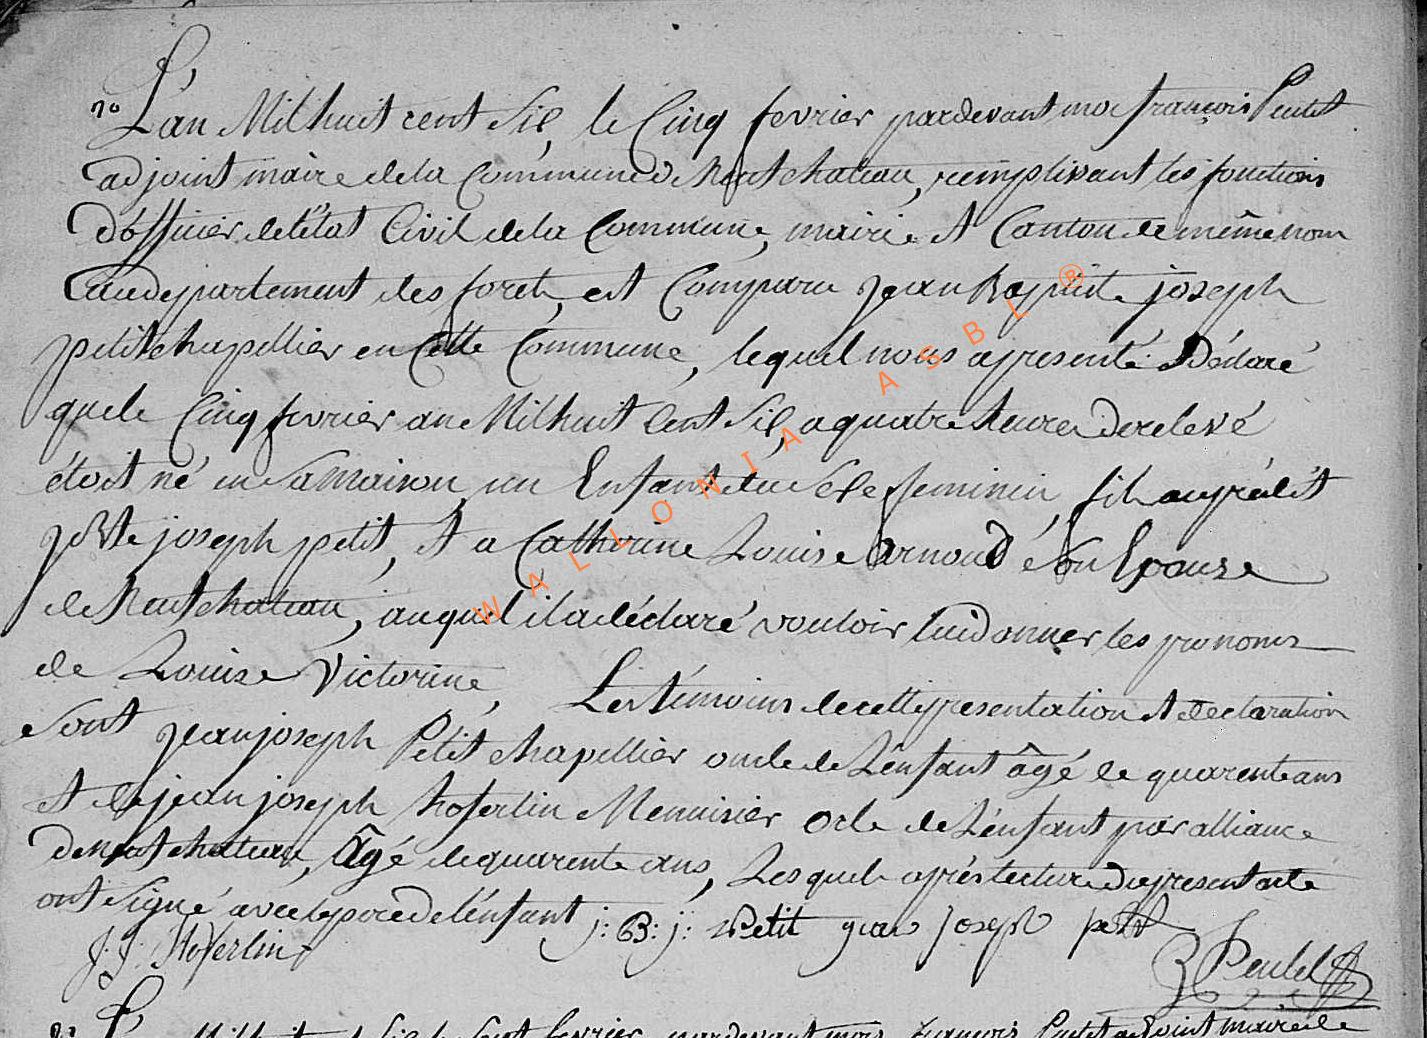 L'an Mil huit cent Six, le Cinq fevrier pardevant moi françois Peutet
adjoint maire de la Commune de Neufchateau, remplissant les fonctions
d'officier de l'état Civil de la Commune, mairie et Canton de même nom
au departement des foret, est Comparu jean Baptiste joseph
petit chapellier en Cette Commune, lequel nous a presenté et Déclaré
que le Cinq fevrier an Mil huit Cent Six, a quatre heures de relevé
étoit né en sa maison un Enfant du Sexe feminin, fil au prédit
jBte joseph petit, et a Catherine Louise Arnould son Epouse
de Neufchateau, auquel il a déclaré vouloir lui donner les pronoms
de Louise Victorine, Les témoins de cette presentation et declaration
sont jean joseph Petit chapellier oncle de L'enfant âgé de quarente ans
et de jean joseph hoferlin Menuisier Oncle de L'enfant par alliance
de Neufchateau, âgé de quarente ans, Lesquels après lecture du present acte
ont signé avec le pere de l'enfant j: B: j: Petit jean joseph petit
J: J: Hoferlin
WALLONIA ASBL ®